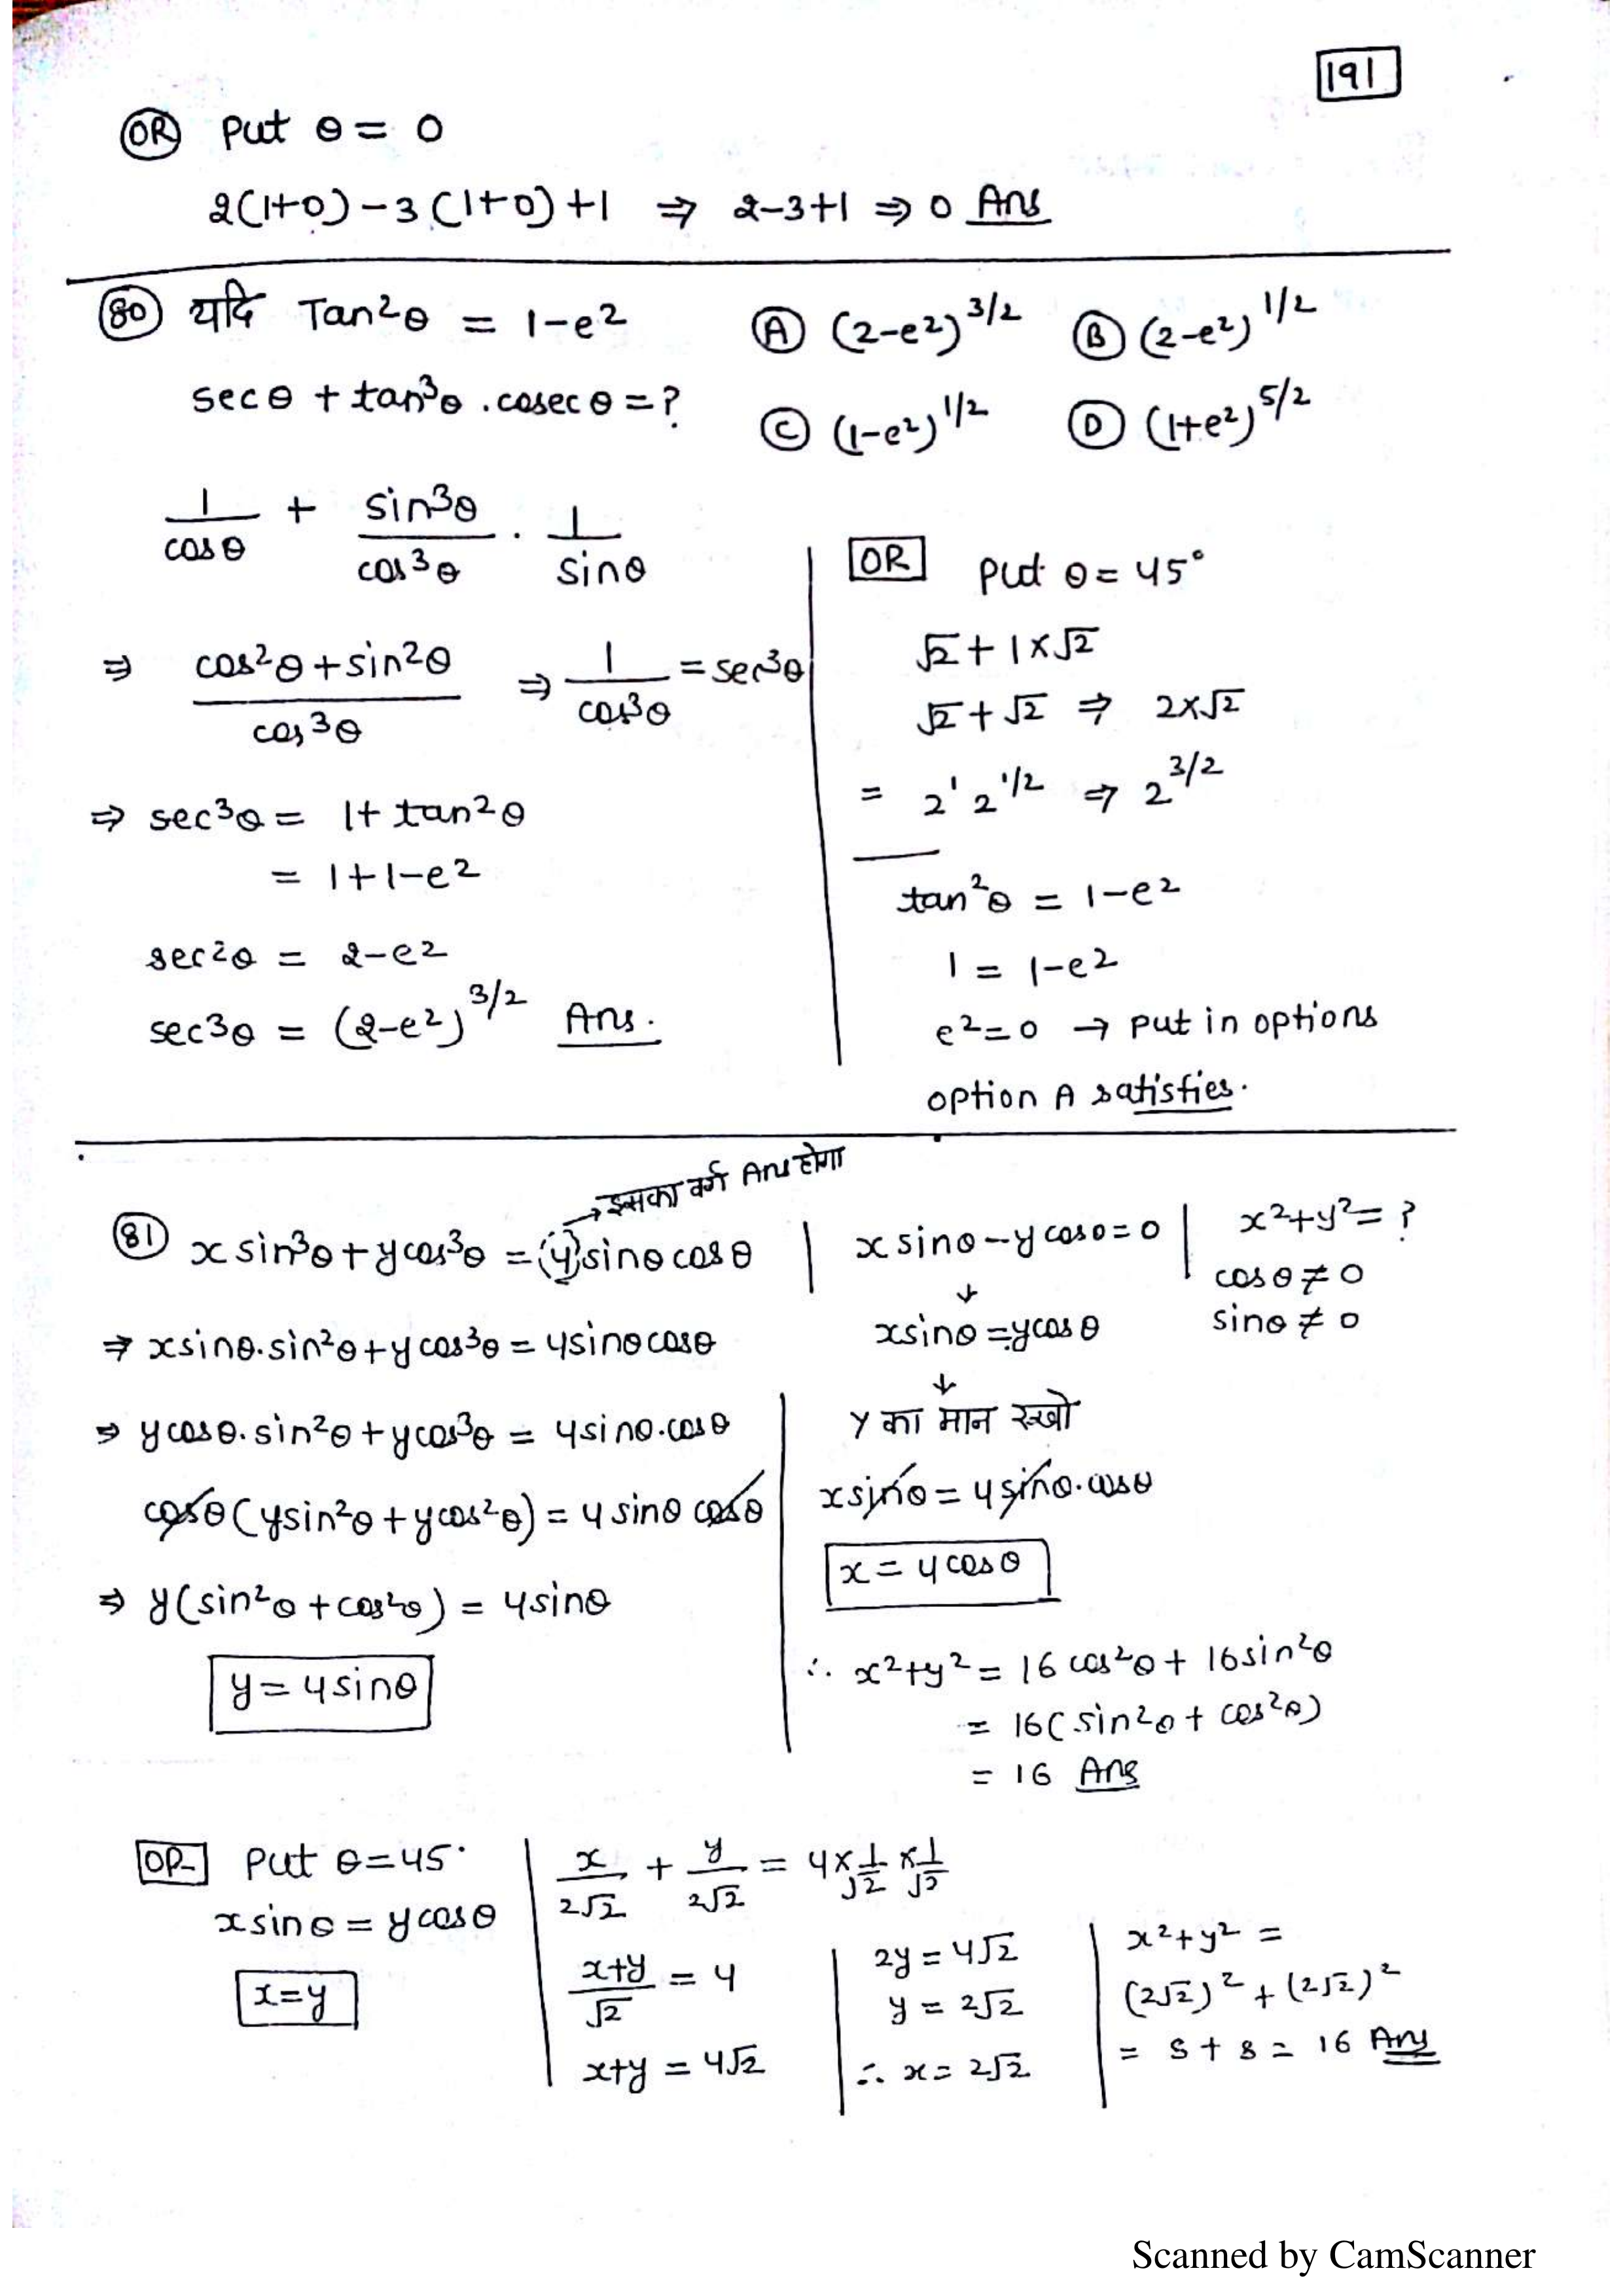 191
OR Put θ = 0
2(1+0)-3(1+0)+1 ⇒ 2-3+1 ⇒ 0 Ans
80 यदि Tan²θ = 1-e² A (2-e²)^3/2 B (2-e²)^1/2
secθ + tan³θ . cosecθ = ? C (1-e²)^1/2 D (1+e²)^5/2
1/cosθ + sin³θ/cos³θ . 1/sinθ
⇒ cos²θ+sin²θ/cos³θ ⇒ 1/cos³θ = sec³θ
⇒ sec³θ = 1+tan²θ
= 1+1-e²
sec²θ = 2-e²
sec³θ = (2-e²)^3/2 Ans.
OR Put θ = 45°
√2 + 1×√2
√2 + √2 ⇒ 2×√2
= 2¹ 2^1/2 ⇒ 2^3/2
tan²θ = 1-e²
1 = 1-e²
e²=0 → Put in options
option A satisfies.
→ इसका वर्ग Ans होगा
81 x sin³θ + y cos³θ = (4) sinθ cosθ | x sinθ - y cosθ = 0 | x²+y² = ?
cosθ ≠ 0
sinθ ≠ 0
⇒ x sinθ.sin²θ + y cos³θ = 4 sinθ cosθ
⇒ y cosθ.sin²θ + y cos³θ = 4 sinθ.cosθ
cosθ (y sin²θ + y cos²θ) = 4 sinθ cosθ
⇒ y(sin²θ + cos²θ) = 4 sinθ
y = 4 sinθ
↓
x sinθ = y cosθ
↓
Y का मान रखो
x sinθ = 4 sinθ.cosθ
x = 4 cosθ
∴ x²+y² = 16 cos²θ + 16 sin²θ
= 16(sin²θ + cos²θ)
= 16 Ans
OR Put θ=45°
x sinθ = y cosθ
x=y
x/2√2 + y/2√2 = 4×1/√2×1/√2
x+y/√2 = 4
x+y = 4√2
2y = 4√2
y = 2√2
∴ x = 2√2
x²+y² =
(2√2)² + (2√2)²
= 8 + 8 = 16 Ans
Scanned by CamScanner